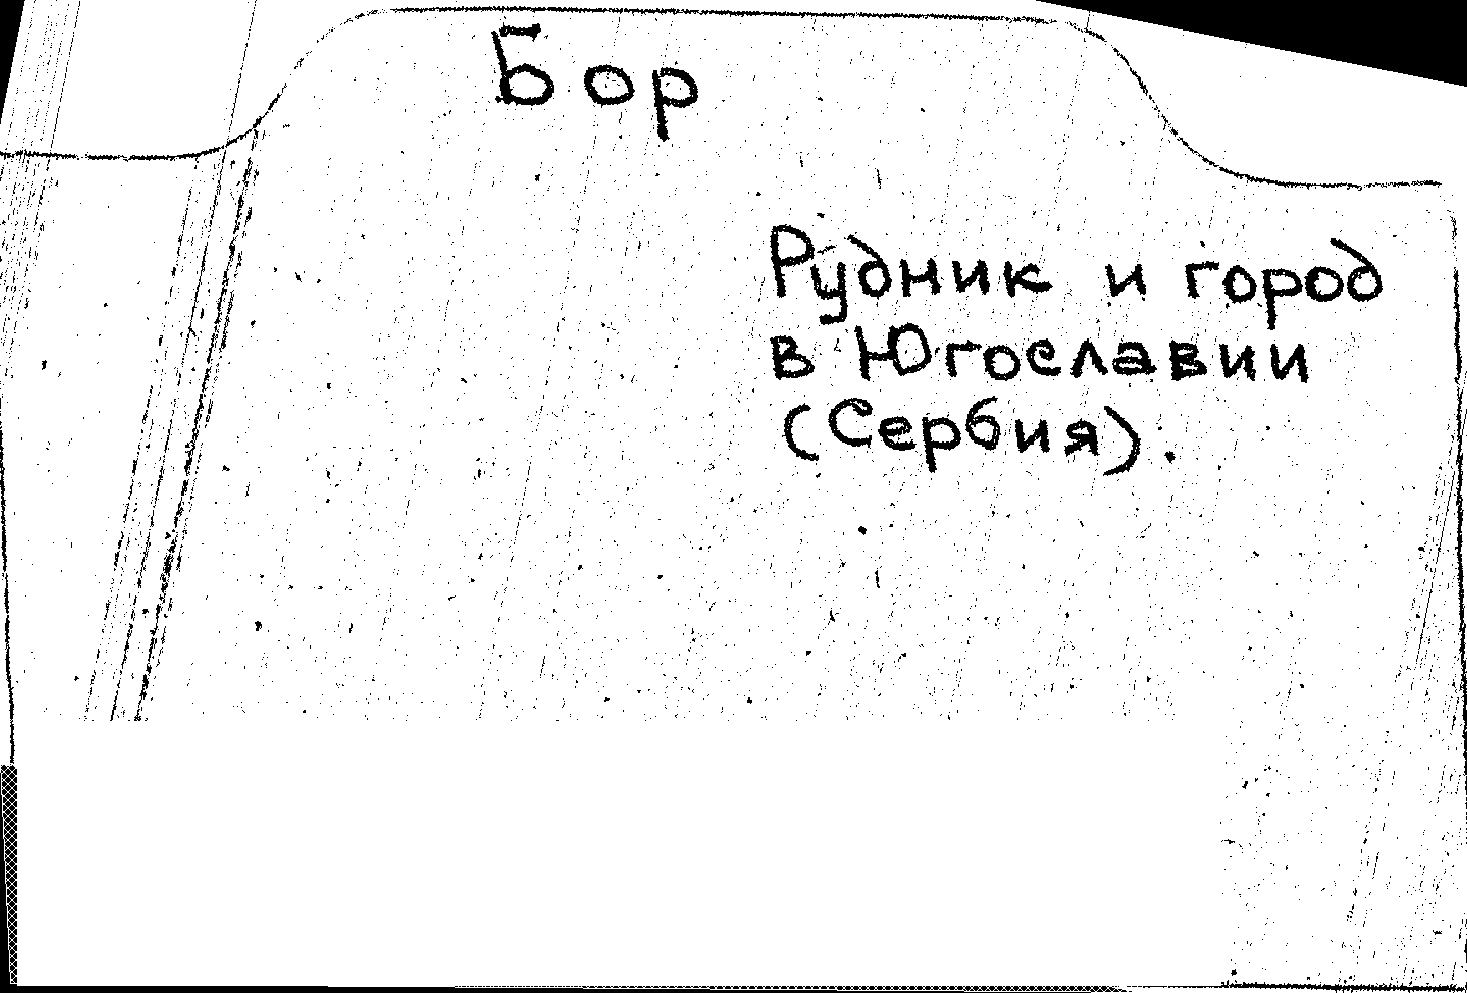 Бор
Рудник и город
в Югославии
(Сербия).